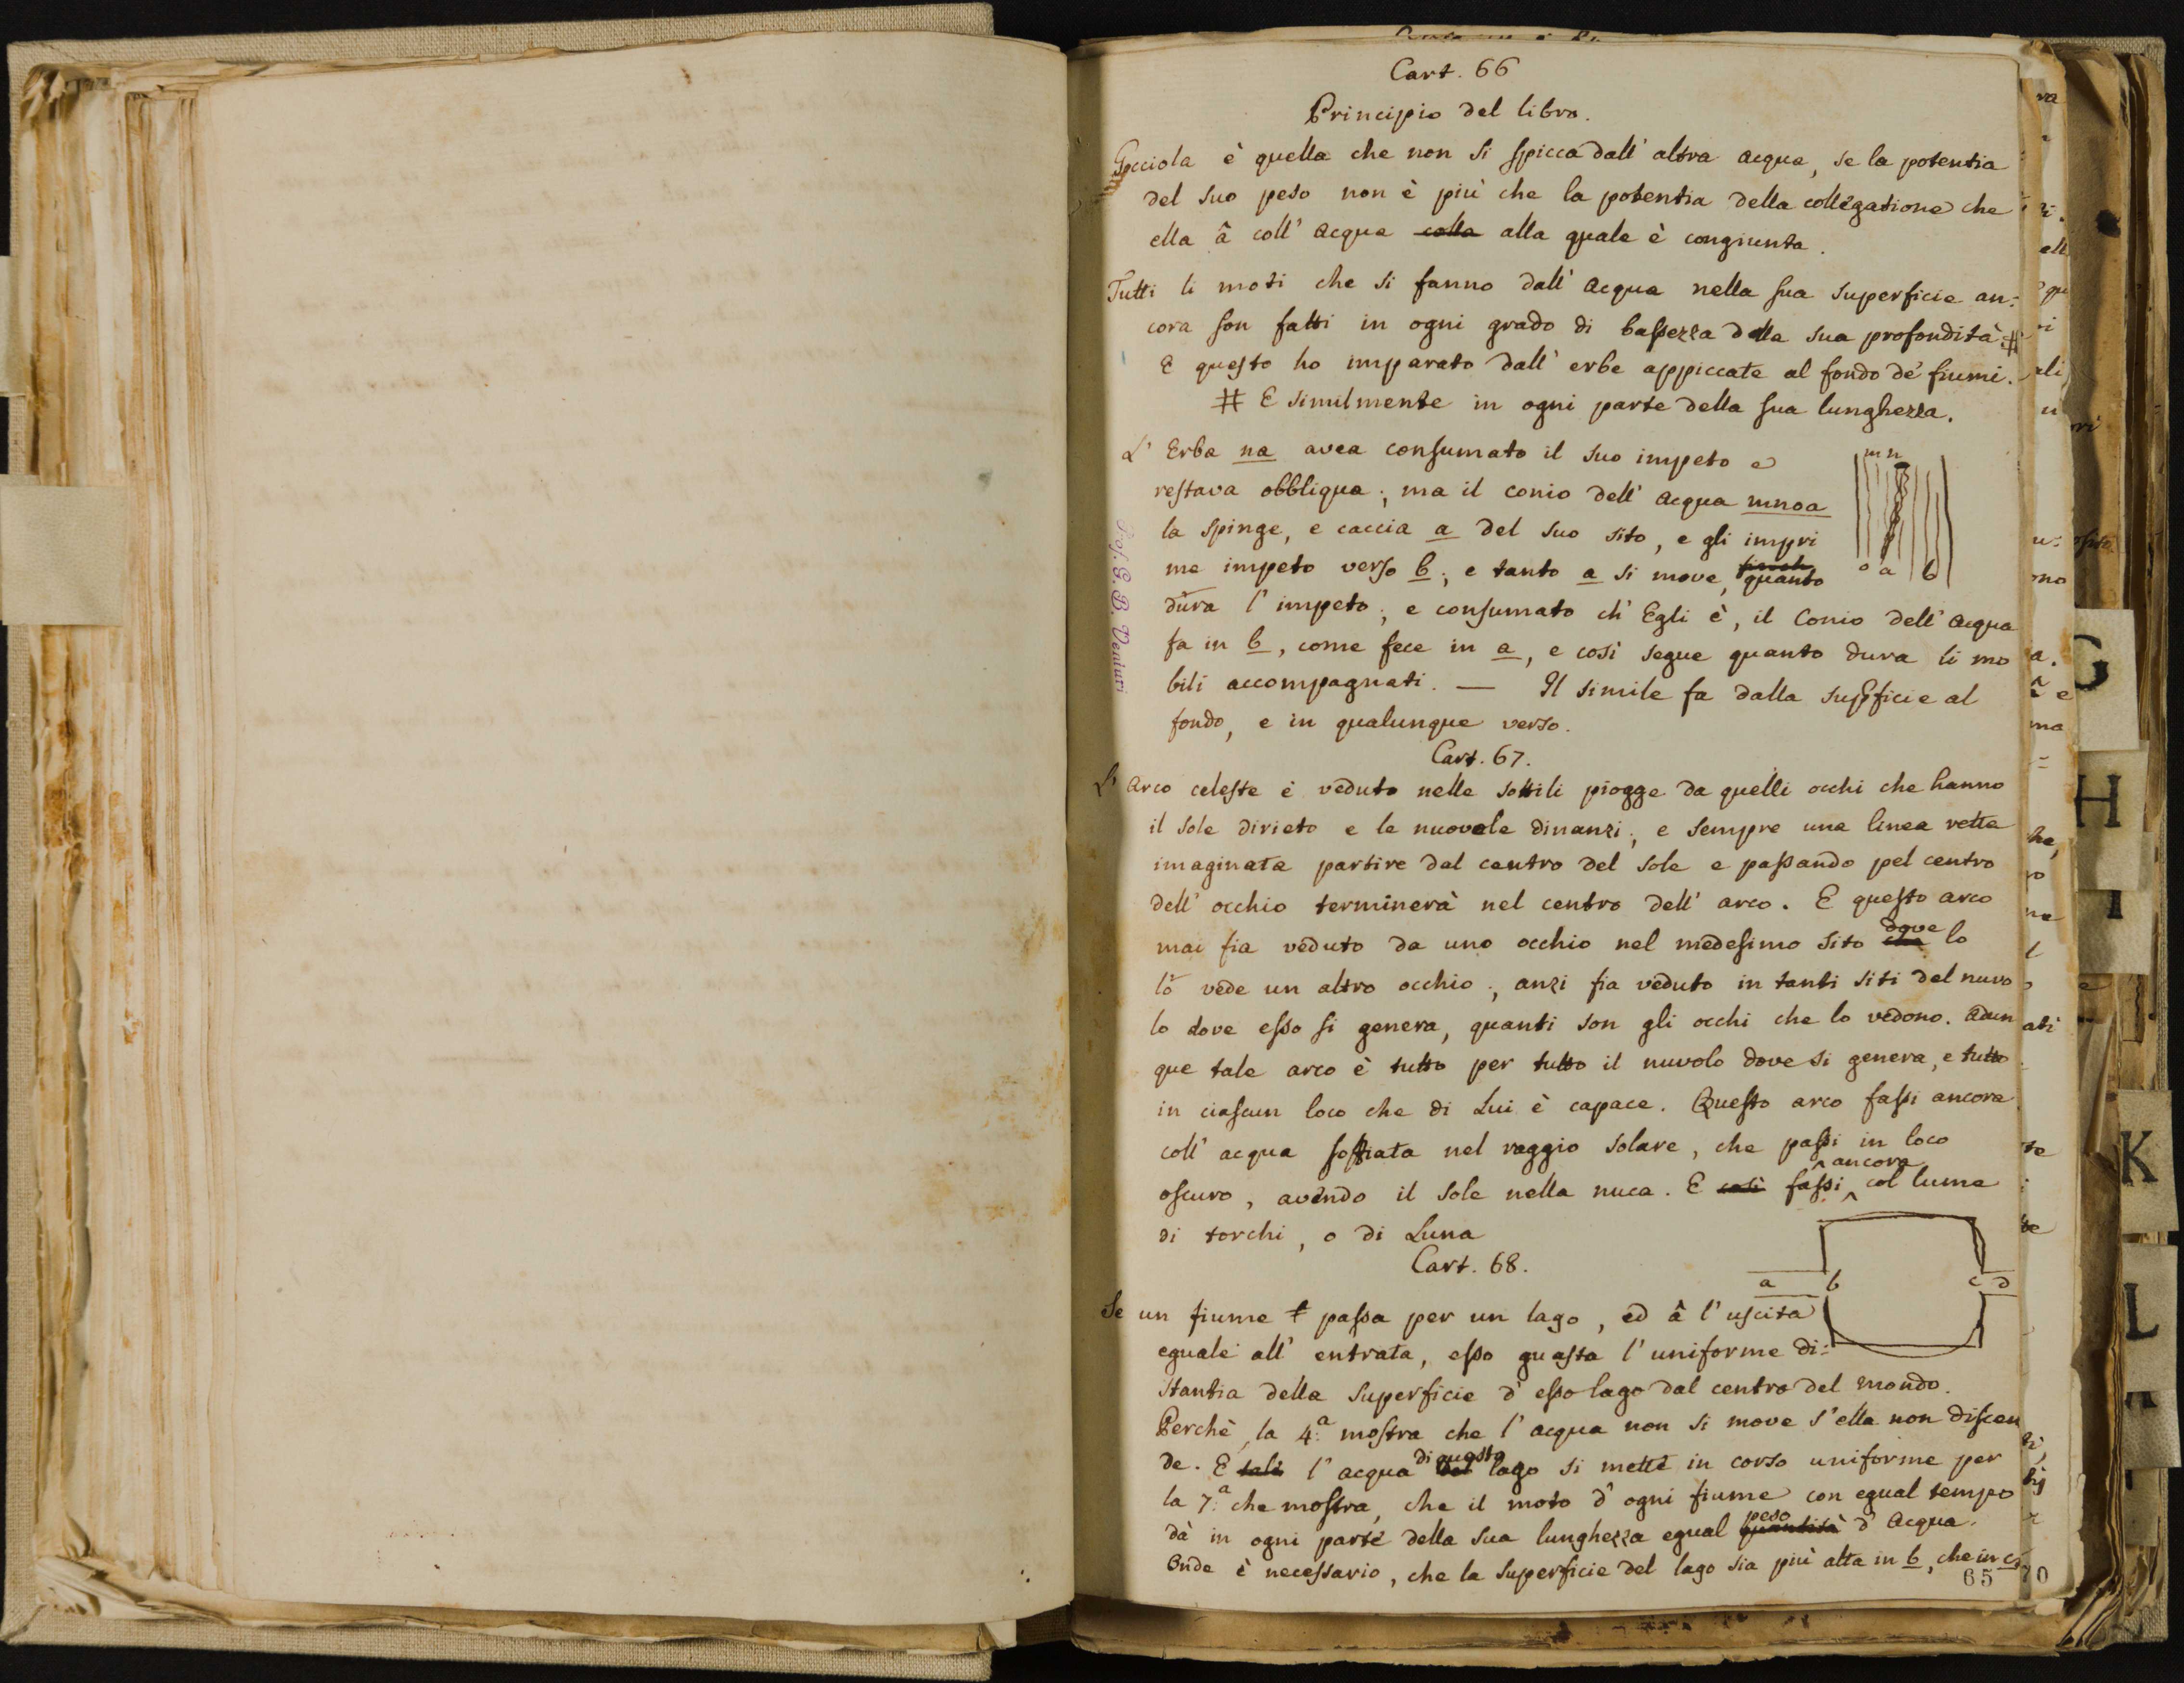 Cart. 66
Principio del libro.
Gocciola è quella che non si spicca dall' altra acqua, se la potentia
del suo peso non è più che la potentia della collegatione che
ella â coll' acqua colla alla quale è congiunta.
Tutti li moti che si fanno dall' acqua nella sua superficie an:
cora son fatti in ogni grado di bassezza della sua profondità #
E questo ho imparato dall' erbe appiccate al fondo de' fiumi.
# E similmente in ogni parte della sua lunghezza.
L' Erba na avea consumato il suo impeto e
restava obbliqua; ma il conio dell' acqua mnoa
la spinge, e caccia a del suo sito, e gli impri
me impeto verso b; e tanto a si move, quanto
dura l' impeto; e consumato ch' Egli è, il Conio dell' acqua
fa in b, come fece in a, e così segue quanto dura li mo
bili accompagnati. — Il simile fa dalla supficie al
fondo, e in qualunque verso.
m n
o a b
Prof. G. B. Venturi
Cart. 67.
L' arco celeste è veduto nelle sottili piogge da quelli occhi che hanno
il sole dirieto e le nuovole dinanzi; e sempre una linea retta
imaginata partire dal centro del sole e passando pel centro
dell' occhio terminerà nel centro dell' arco. E questo arco
mai fia veduto da uno occhio nel medesimo sito che dove lo
lo vede un altro occhio; anzi fia veduto in tanti siti del nuvo
lo dove esso si genera, quanti son gli occhi che lo vedono. Adun
que tale arco è tutto per tutto il nuvolo dove si genera, e tutto
in ciascun loco che di Lui è capace. Questo arco fassi ancora
coll' acqua soffiata nel raggio solare, che passi in loco
oscuro, avendo il sole nella nuca. E così fassi ancora col lume
di torchi, o di Luna
Cart. 68.
a b c d
Se un fiume passa per un lago, ed â l' uscita
eguale all' entrata, esso guasta l' uniforme di:
stantia della superficie d' esso lago dal centro del mondo.
Perchè, la 4.a mostra che l' acqua non si move s' ella non discen
de. E tale l' acqua del di questo lago si mette in corso uniforme per
la 7.a che mostra, che il moto d' ogni fiume con egual tempo
dà in ogni parte della sua lunghezza egual quantità peso d' acqua.
Onde è necessario, che la superficie del lago sia più alta in b, che in c.
65
70
G
H
I
K
L